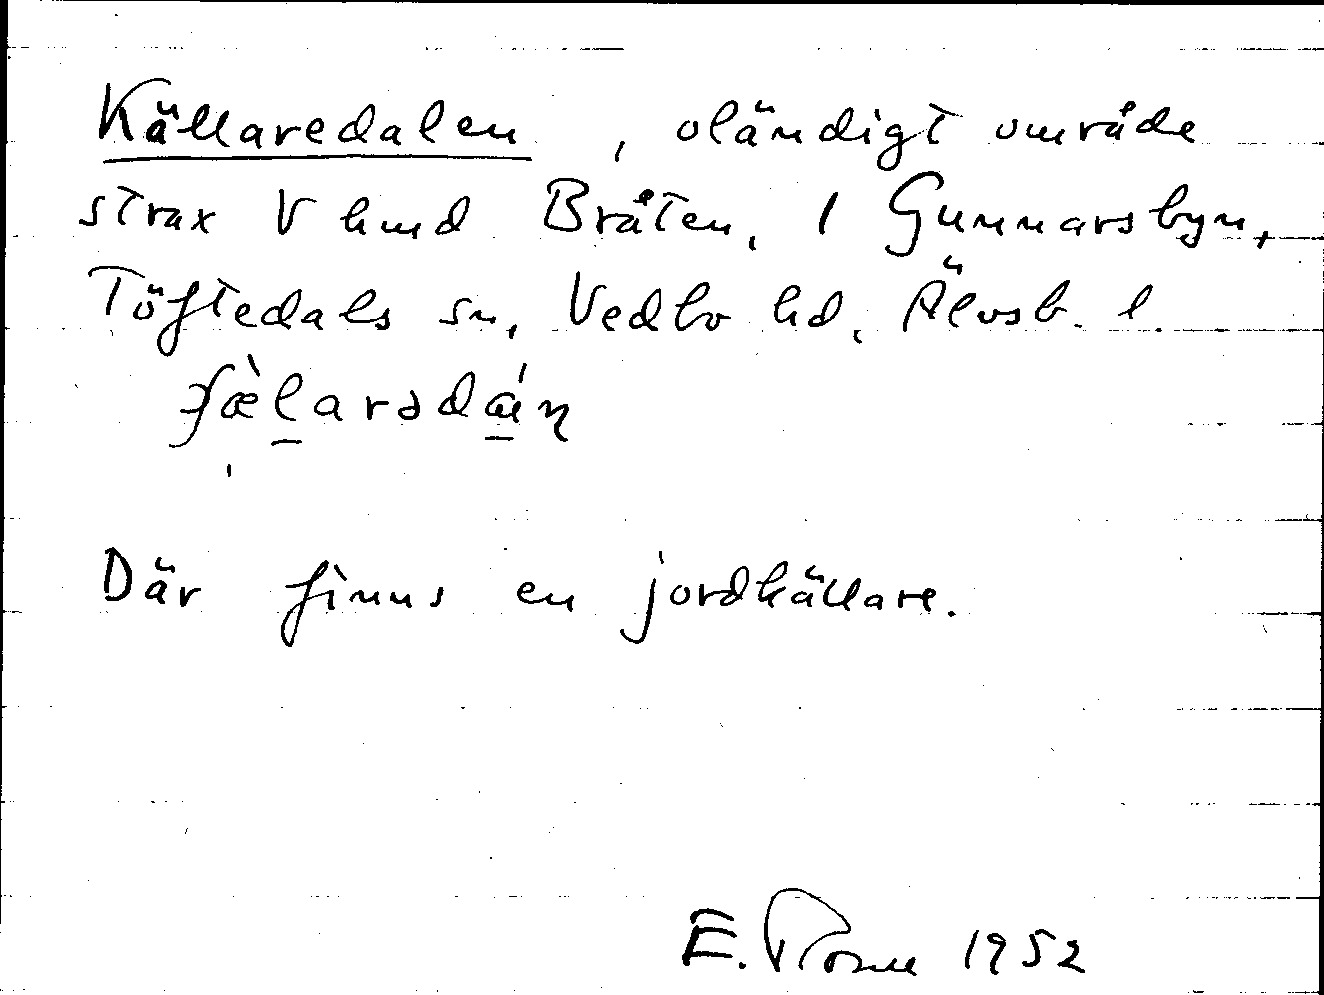 Källaredalen, oländigt område
strax V hmd Bråten, 1 Gunnarsbyn,
Töftedals sn, Vedbo hd, Älvsb. l.
Där finns en jordkällare.
E. 1952